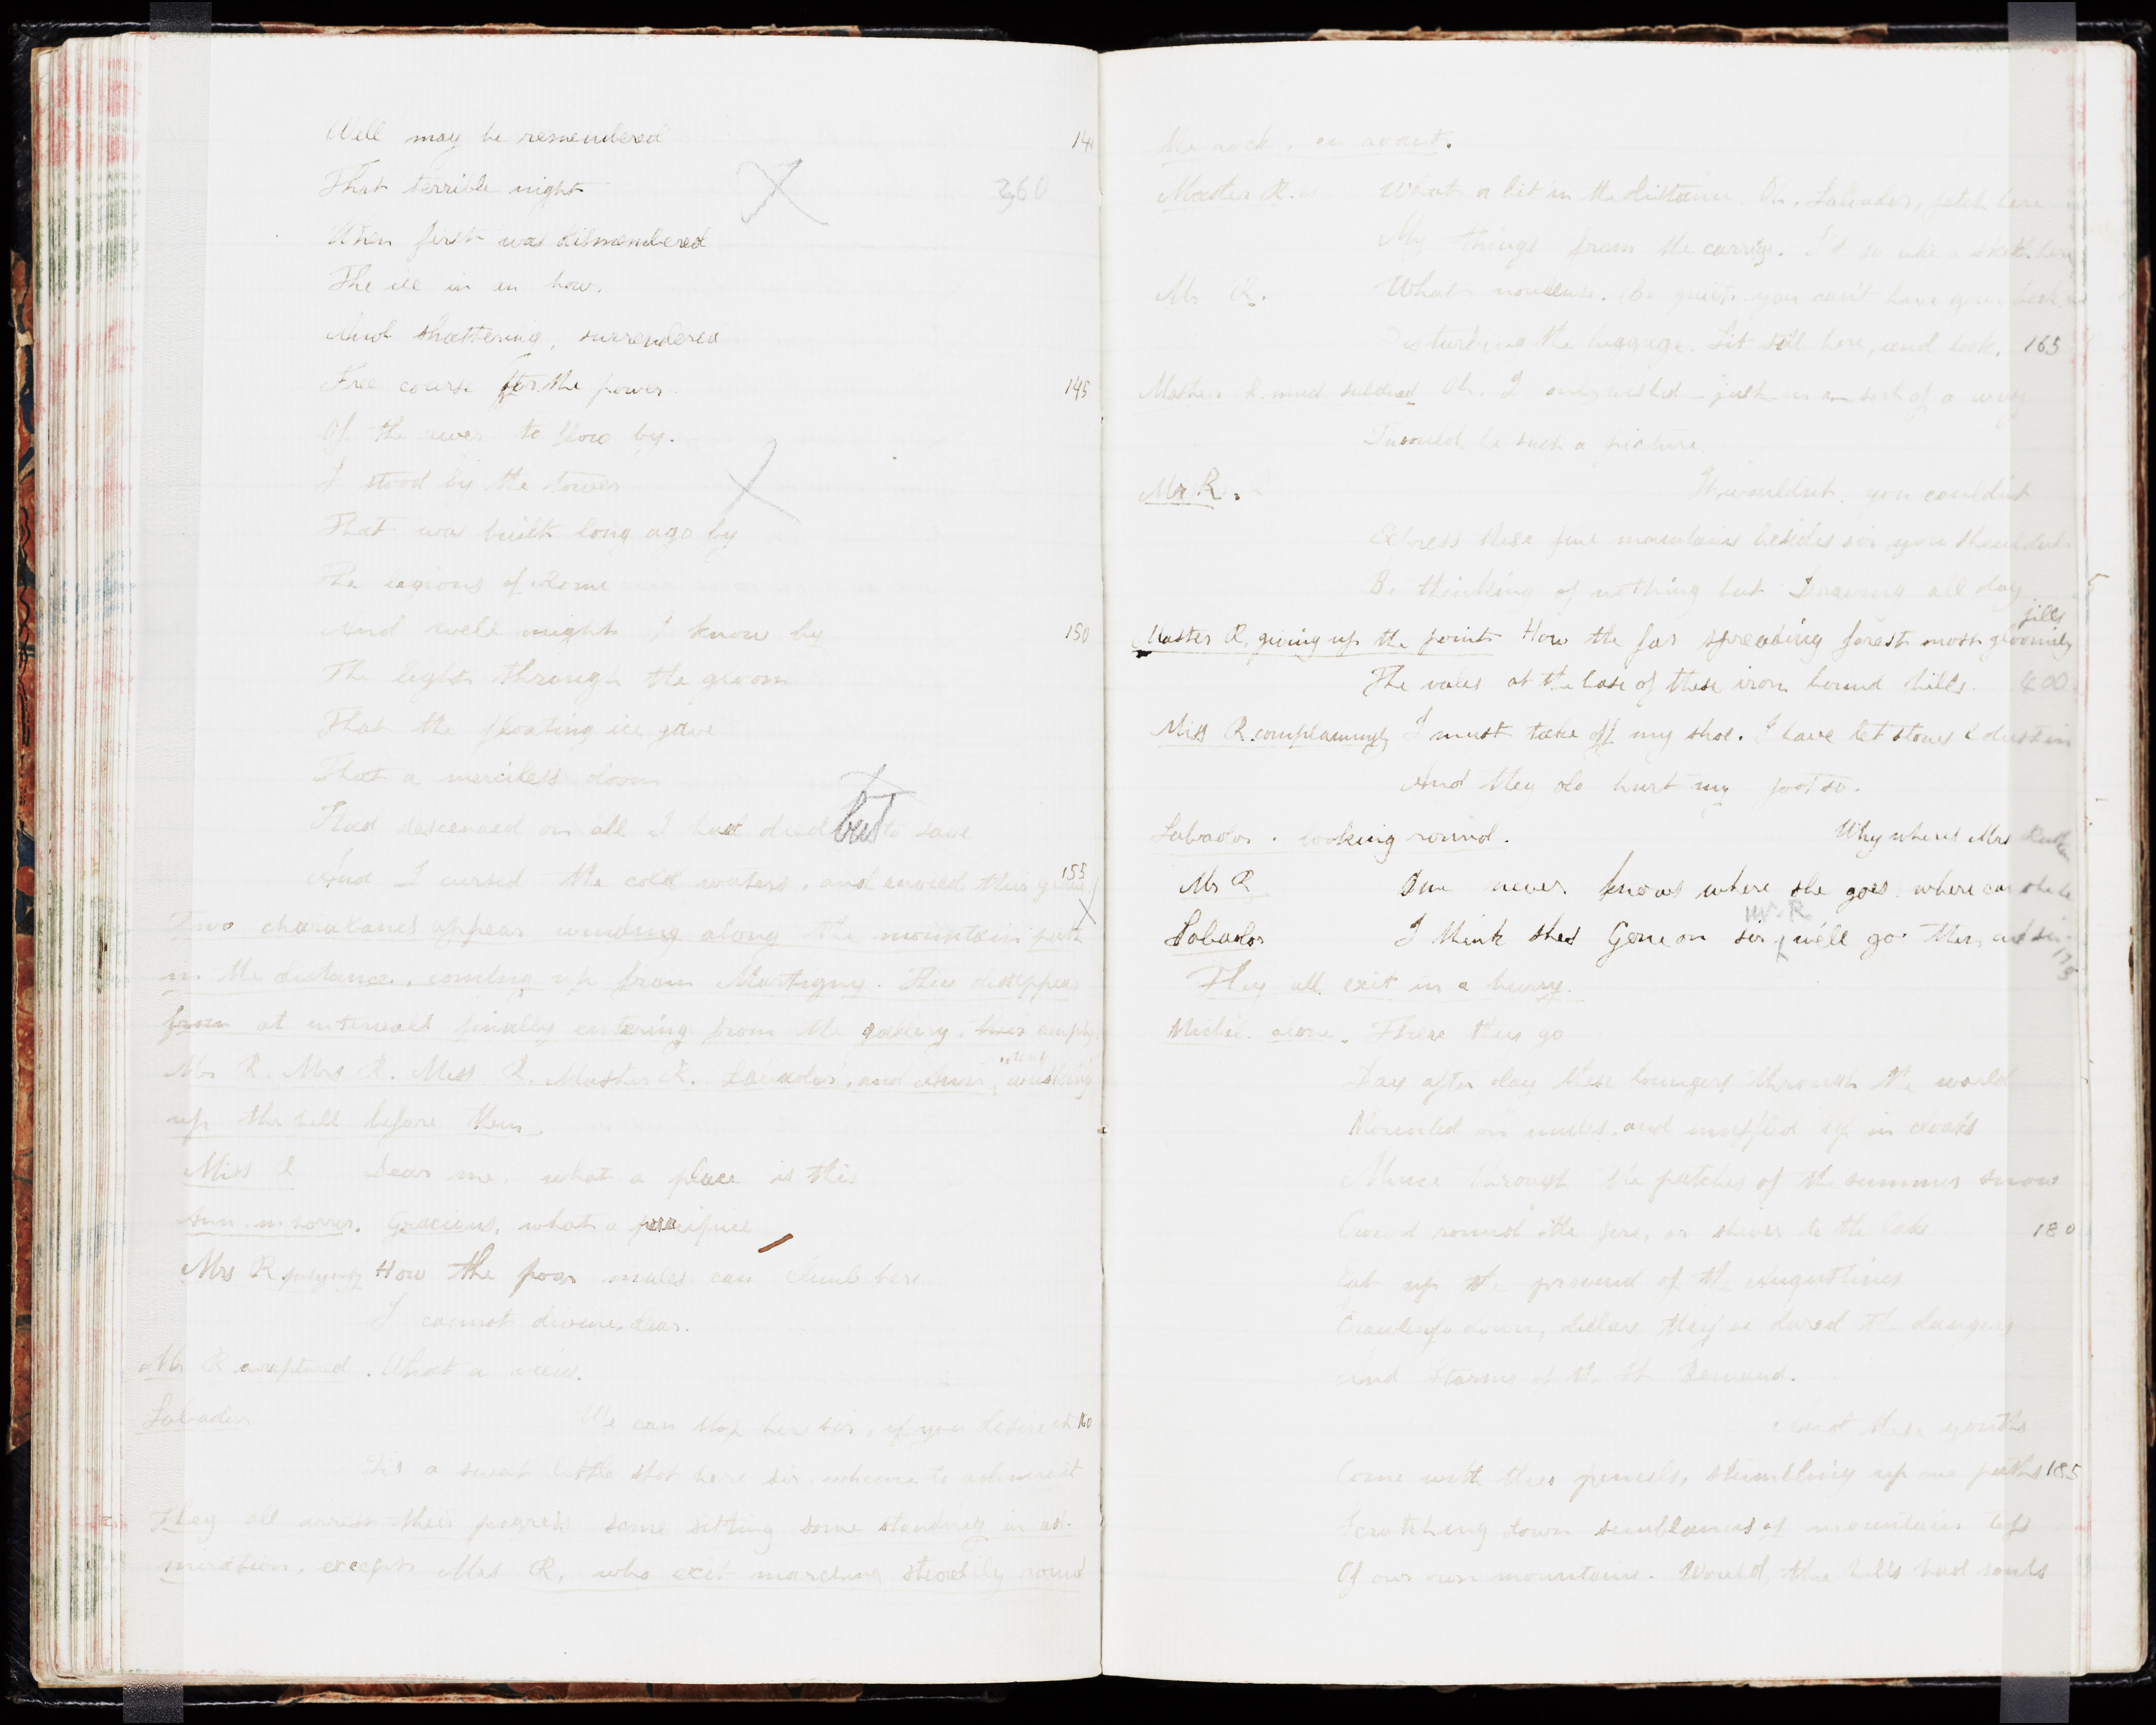 Well may be remembered 14
That terrible night 360
When first was dismembered
The ice in an hour
And shattering, surrendered
Free course for the power 145
Of the river to flow by.
I stood by the tower
That was built long ago by
The legions of Rome
And well might I know by 150
The light through the gloom
That the floating ice gave
That a merciless doom
Had descended on all I had died but to save
And I cursed the cold waters, and envied their grave 155
Two charabancs appear winding along the mountain path
in the distance, coming up from Martigny. They disappear
from at intervals finally entering from the gallery, empty.
Mr R. Mrs R. Miss R. Master R. Salvador, and Ann, walking
up the hill before them.
Miss R Dear me, what a place is this
Ann. in horror. Gracious, what a precipice
Mrs R pityingly How the poor mules can climb here
I cannot divine, dear.
Mr R enraptured. What a view.
Salvador We can stop here sir, if you desire it 160
'Tis a sweet little spot here sir, to admire it
They all arrest their progress some sitting some standing in ad-
miration, except Mrs R, who exit marching steadily round
the rock, en avant.
Master R. What a bit in the distance Oh, Salvador, fetch here
My things from the carriage. I'd so like a sketch here
Mr R. What nonsense. Be quiet. you can't have your book
Disturbing the luggage. Sit still here, and look. 165
Master R. much subdued Oh, I only wished – just in a sort of a way
Twould be such a picture.
Mr R. It wouldn't. you couldn't
Express these fine mountains besides sir you shouldn't
Be thinking of nothing but Drawing all day
Master R, giving up the point How the far spreading forest most gloomily fills
The vales at the base of these iron bound hills. 400
Miss R complainingly I must take off my shoe. I have let stones & dust in
And they do hurt my foot so.
Salvador. looking round. Why wheres Mrs
Mr R One never knows where she goes. where can she be
Salvador I think shes Gone on sir Mr R we'll go then 175
They all exit in a hurry.
Michel. alone. There they go
Day after day these loungers through the world
Mounted on mules, and muffled up in cloaks
Mince through the patches of the summer snow
Crowd round the fire, or shiver to the lake 180
Eat up the provend of the Augustines
Crawling down, declare they've dared the dangers
And Storms of the St Bernard.
And these youths
Come with their pencils, stumbling up our paths 185
Scratching down semblances of mountain tops
Of our own mountains. Would, the hills had souls